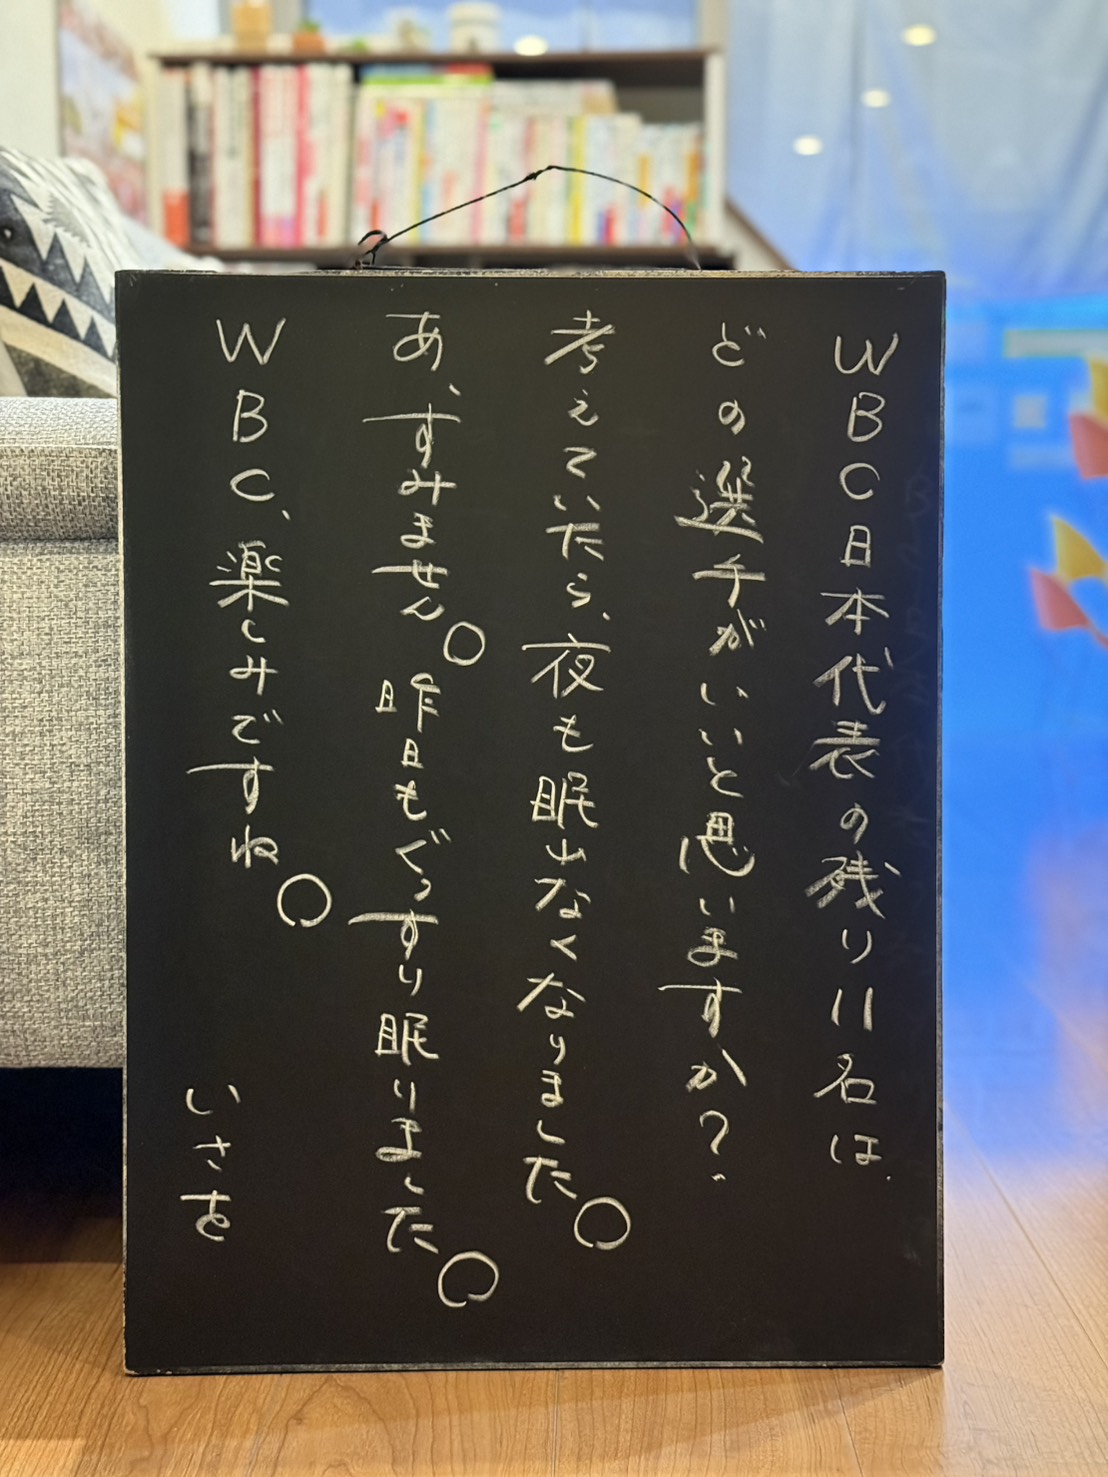 WBC日本代表の残り11名は、
どの選手がいいと思いますか?
考えていたら、夜も眠れなくなりました。
あ、すみません。昨日もぐっすり眠りました。
WBC、楽しみですね。
いさを